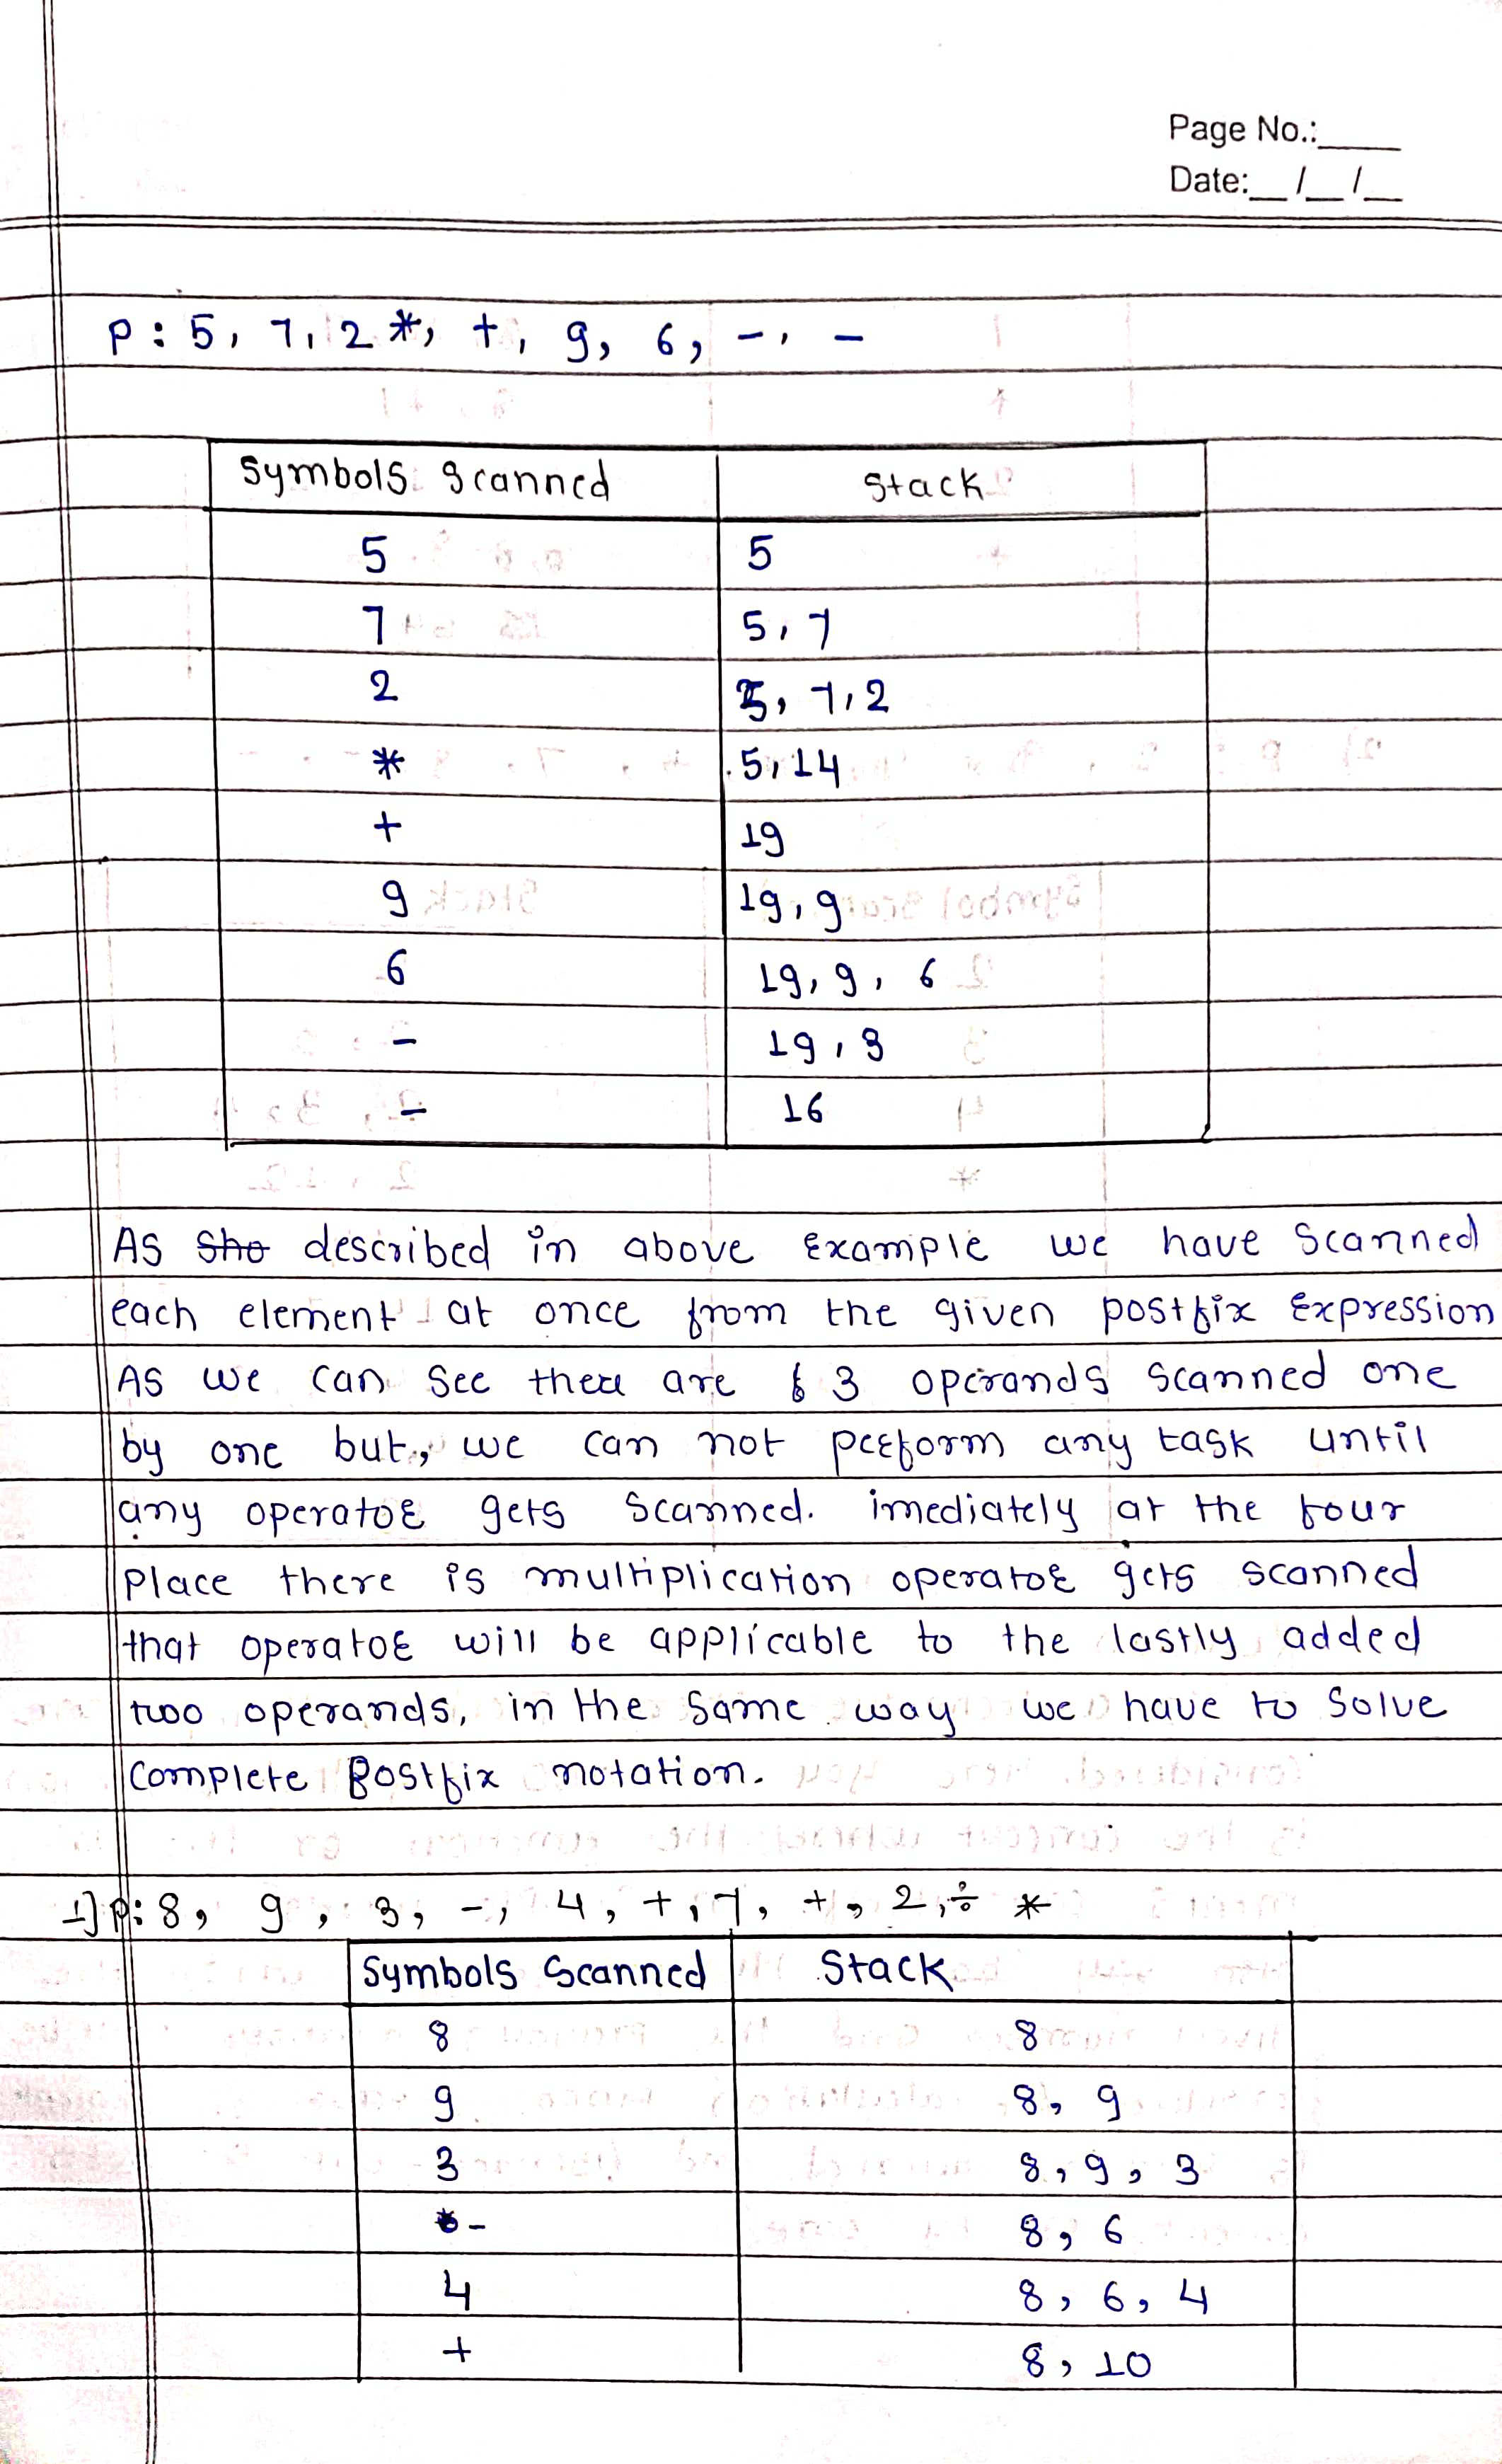 Page No.:____
Date:__/__/__
P : 5, 7, 2 *, +, 9, 6, -, -
Symbols Scanned Stack
5 5
7 5, 7
2 5, 7, 2
* 5, 14
+ 19
9 19, 9
6 19, 9, 6
- 19, 3
- 16
As sho described in above Example we have Scanned
each element at once from the given postfix Expression
As we can see there are 3 operands scanned one
by one but, we can not perform any task until
any operator gets Scanned. imediately at the four
place there is multiplication operator gets scanned
that operator will be applicable to the lastly added
two operands, in the same way we have to solve
Complete Postfix notation.
1] P: 8, 9, 3, -, 4, +, 7, +, 2, ÷ *
Symbols Scanned Stack
8 8
9 8, 9
3 8, 9, 3
- 8, 6
4 8, 6, 4
+ 8, 10